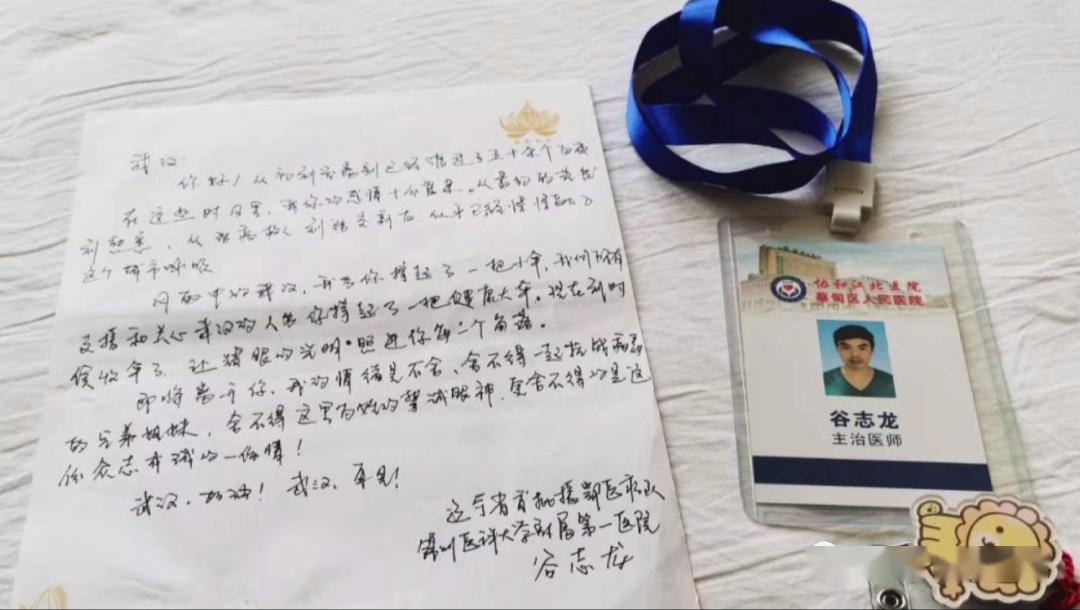 武汉:
你好!从初到至离别已经渡过了五十余个日夜
在这些时日里,我你的感情十分复杂。从最初的
到熟悉,从
这个城市呼吸
风雨中的武汉,我为你撑起了一把小伞,我们所有
支援和关心武汉的人为你撑起了一把硕大伞。现在到时
候收伞了,让耀眼的光明照进你每一个角落。
即将离开你,我的情绪是不舍,舍不得一起抗战病毒
的兄弟姐妹,舍不得这里百姓的赞诚眼神,更舍不得的是这
份众志成城的一份情!
武汉,加油!武汉,再见!
辽宁省首批援鄂医疗队
锦州医科大学附属第一医院
谷志龙
协和江北医院
蔡甸区人民医院
谷志龙
主治医师